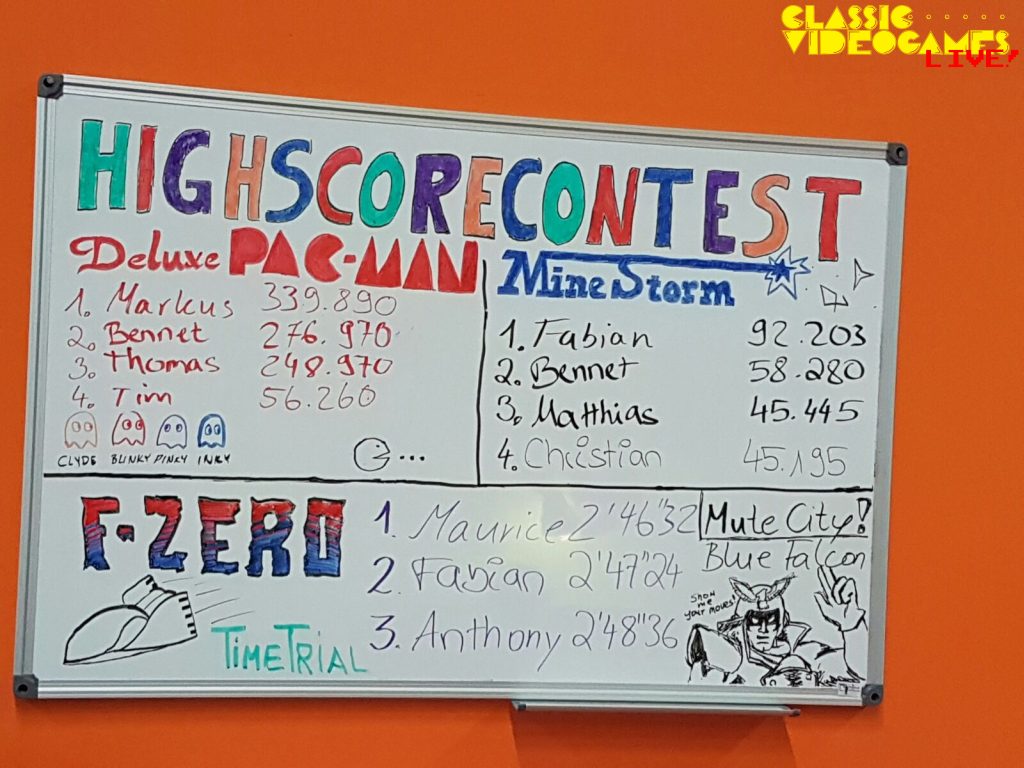 CLASSIC
VIDEOGAMES
LIVE!
HIGHSCORECONTEST
Deluxe PAC-MAN
1. Markus 339.890
2. Bennet 276.970
3. Thomas 248.970
4. Tim 56.260
CLYDE BLINKY PINKY INKY
MineStorm
1. Fabian 92.203
2. Bennet 58.280
3. Matthias 45.445
4. Christian 45.195
F-ZERO
TIMETRIAL
1. Maurice 2'46"32
2. Fabian 2'47"24
3. Anthony 2'48"36
Mute City!
Blue Falcon
SHOW
ME
YOUR MOVES!